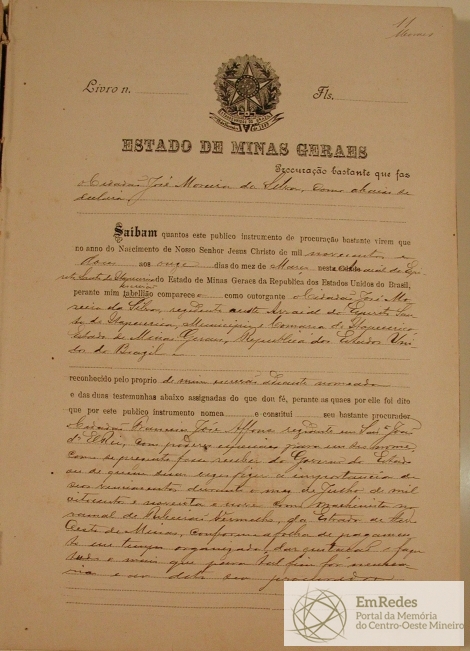 11
Livro n. Fls.
ESTADO DE MINAS GERAES
Procuração bastante que faz
o Cidadão José Moreira da Silva, como abaixo se
declara
Saibam quantos este publico instrumento de procuração bastante virem que
no anno do Nascimento de Nosso Senhor Jesus Christo de mil novecentos e
dous aos onze dias do mez de Março nesta
do Estado de Minas Geraes da Republica dos Estados Unidos do Brasil,
perante mim tabellião compareceo como outorgante o Cidadão José Mo-
reira da Silva, residente neste Arraial do Espirito San-
to de Itapecerica, Municipio e Comarca de Itapecerica
Estado de Minas Geraes, Republica dos Estados Uni-
dos do Brazil
reconhecido pelo proprio de mim escrivão diante nomeado
e das duas testemunhas abaixo assignadas do que dou fé, perante as quaes por elle foi dito
que por este publico instrumento nomea e constitui seu bastante procurador
Cidadão Francisco José Affonso residente em San João
d'El-Rei, com poderes especiaes para em seu nome,
como se presente fora receber do Governo do Estado
ou de quem suas vezes fizer a importancia de
seos vencimentos durante o mez de Julho de mil
oitocento e noventa e como machinista no
ramal de Ribeirão Vermelho, da Estrada de Ferro
Oeste de Minas, conforme a folha de pagamen-
to em tempo organizada, dar quitação e fazer
tudo o mais que para tal fim for necessa-
EmRedes
Portal da Memória
do Centro-Oeste Mineiro